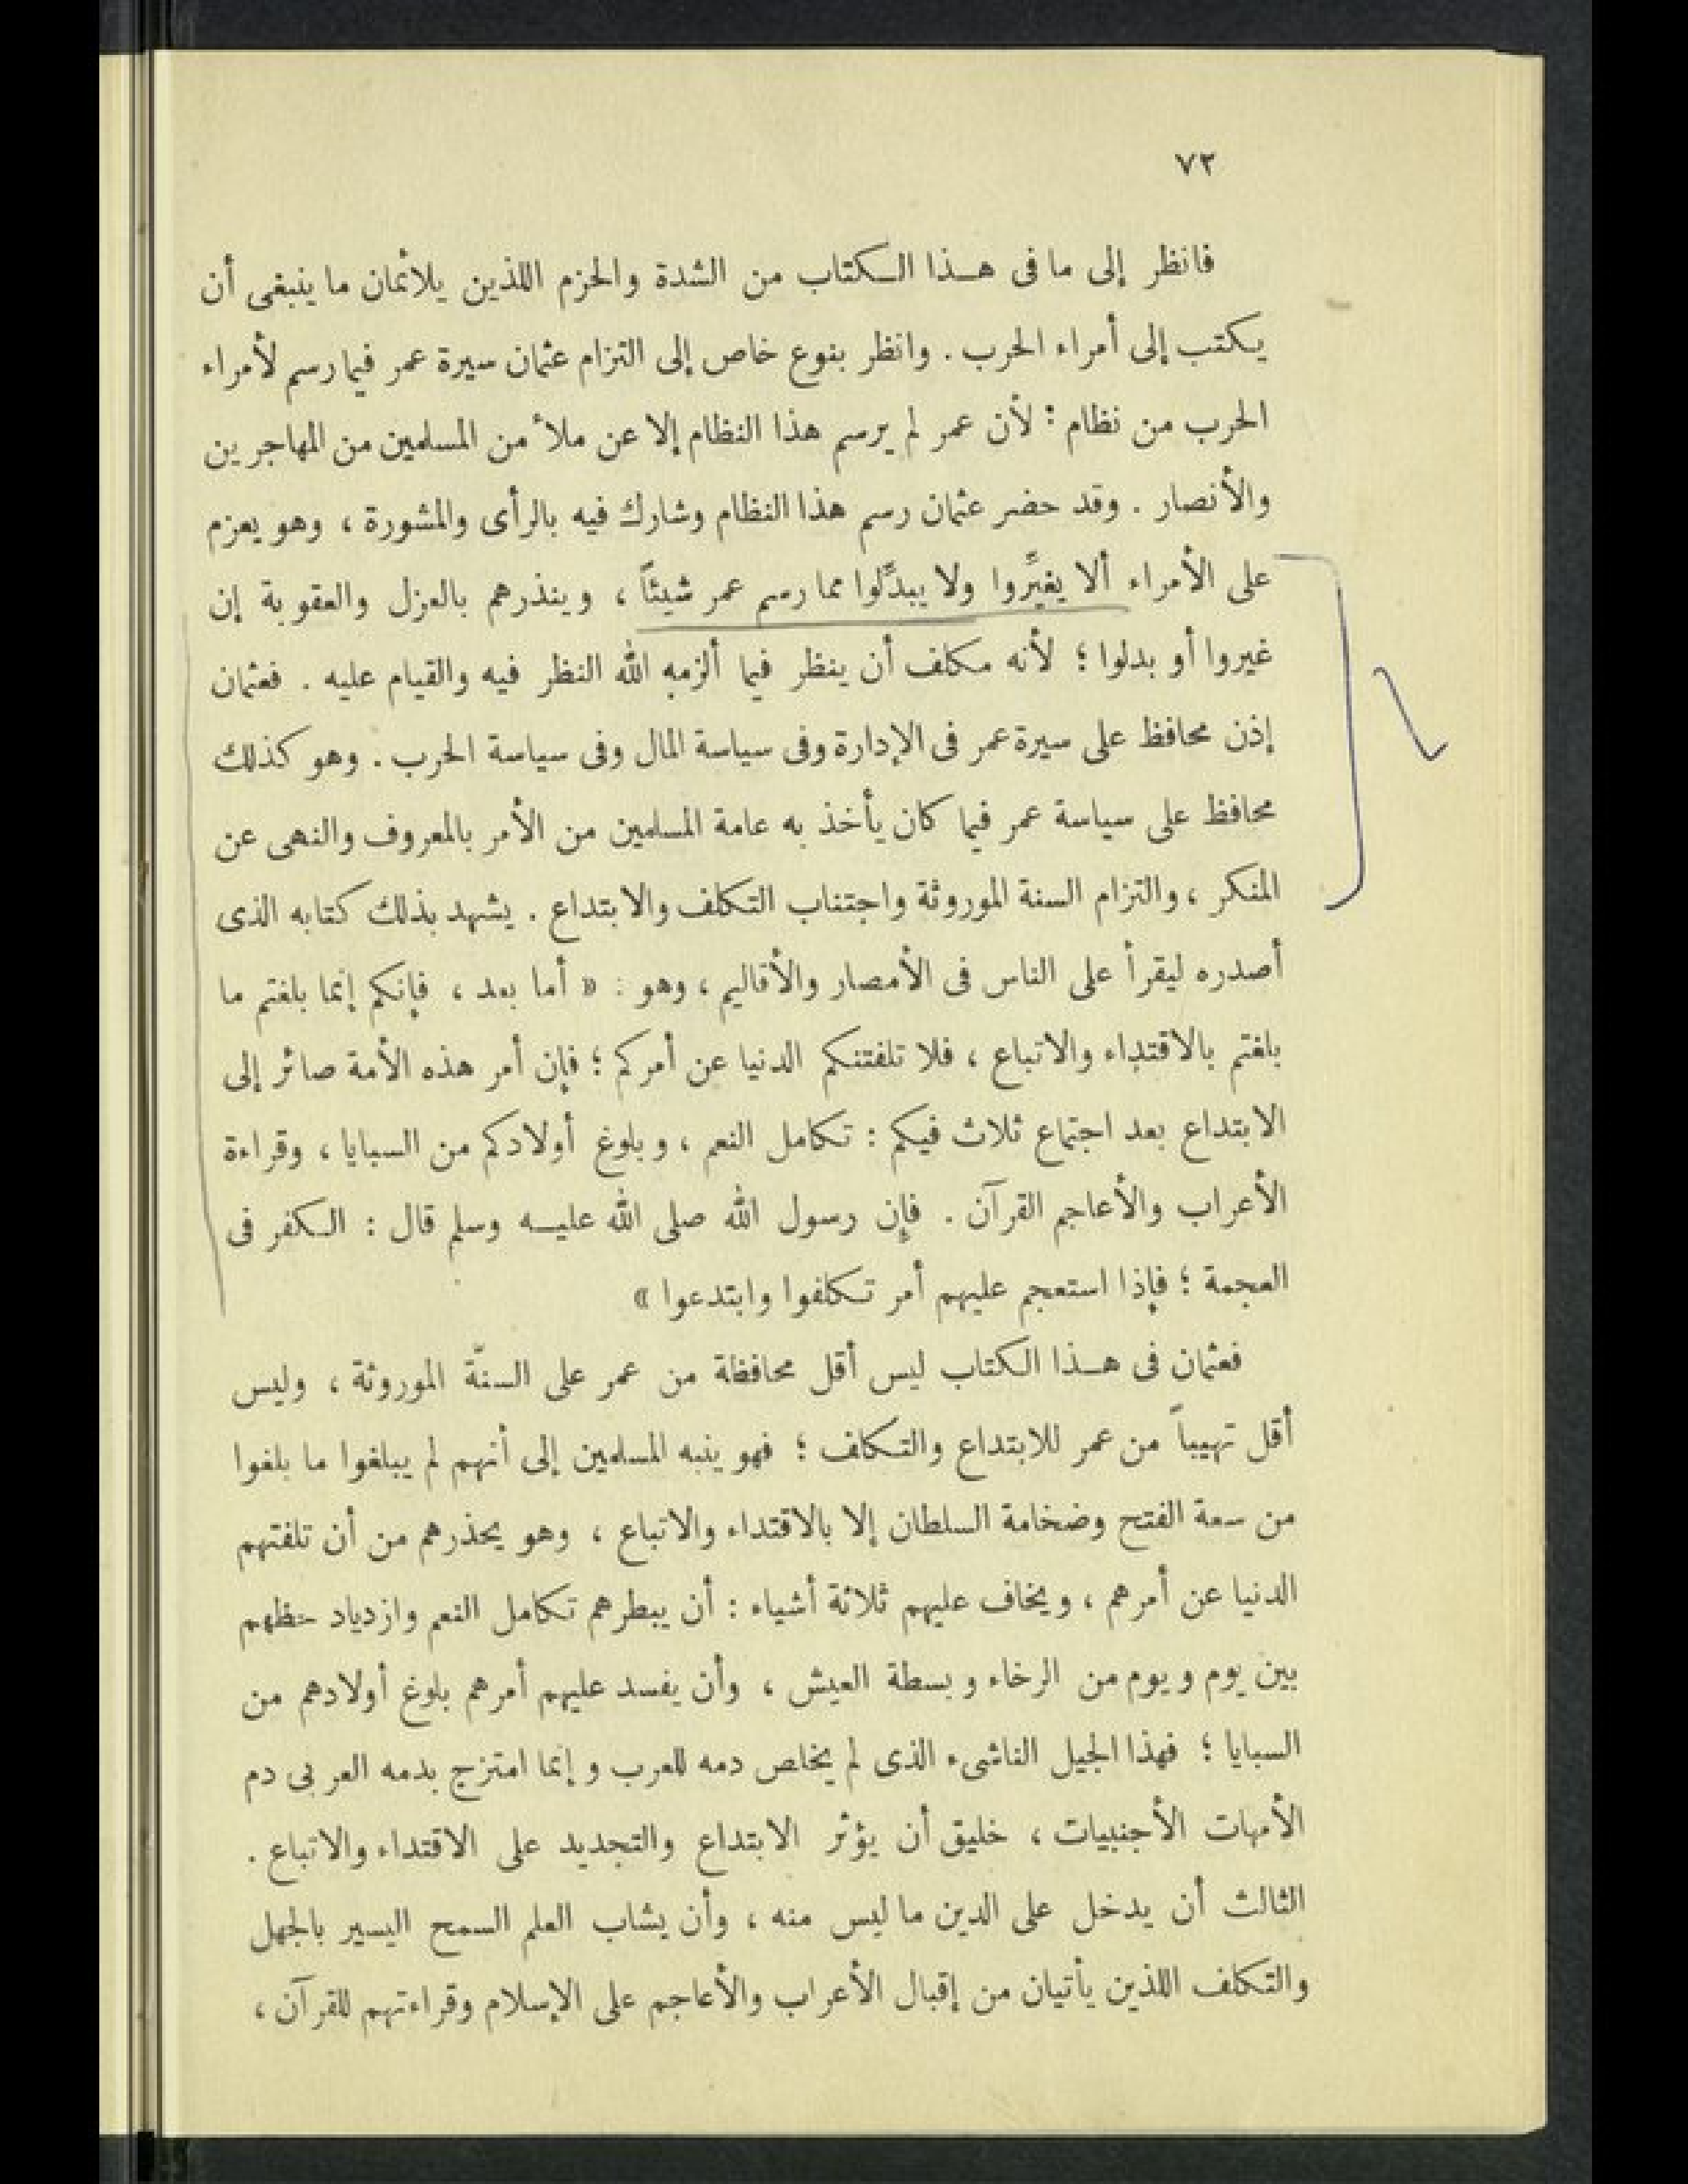 ٧٢
فانظر إلى ما فى هذا الكتاب من الشدة والحزم اللذين يلائمان ما ينبغى أن
يكتب إلى أمراء الحرب . وانظر بنوع خاص إلى التزام عثمان سيرة عمر فيما رسم لأمراء
الحرب من نظام : لأن عمر لم يرسم هذا النظام إلا عن ملأ من المسلمين من المهاجرين
والأنصار . وقد حضر عثمان رسم هذا النظام وشارك فيه بالرأى والمشورة ، وهو يعزم
على الأمراء ألا يغيِّروا ولا يبدِّلوا مما رسم عمر شيئاً ، وينذرهم بالعزل والعقوبة إن
غيروا أو بدلوا ؛ لأنه مكلف أن ينظر فيما ألزمه الله النظر فيه والقيام عليه . فعثمان
إذن محافظ على سيرة عمر فى الإدارة وفى سياسة المال وفى سياسة الحرب . وهو كذلك
محافظ على سياسة عمر فيما كان يأخذ به عامة المسلمين من الأمر بالمعروف والنهى عن
المنكر ، والتزام السنة الموروثة واجتناب التكلف والابتداع . يشهد بذلك كتابه الذى
أصدره ليقرأ على الناس فى الأمصار والأقاليم ، وهو : « أما بعد ، فإنكم إنما بلغتم ما
بلغتم بالاقتداء والاتباع ، فلا تلفتنكم الدنيا عن أمركم ؛ فإن أمر هذه الأمة صائر إلى
الابتداع بعد اجتماع ثلاث فيكم : تكامل النعم ، وبلوغ أولادكم من السبايا ، وقراءة
الأعراب والأعاجم القرآن . فإن رسول الله صلى الله عليه وسلم قال : الكفر فى
العجمة ؛ فإذا استعجم عليهم أمر تكلفوا وابتدعوا »
فعثمان فى هذا الكتاب ليس أقل محافظة من عمر على السنّة الموروثة ، وليس
أقل تهيباً من عمر للابتداع والتكلف ؛ فهو ينبه المسلمين إلى أنهم لم يبلغوا ما بلغوا
من سعة الفتح وضخامة السلطان إلا بالاقتداء والاتباع ، وهو يحذرهم من أن تلفتهم
الدنيا عن أمرهم ، ويخاف عليهم ثلاثة أشياء : أن يبطرهم تكامل النعم وازدياد حظهم
بين يوم ويوم من الرخاء وبسطة العيش ، وأن يفسد عليهم أمرهم بلوغ أولادهم من
السبايا ؛ فهذا الجيل الناشىء الذى لم يخلص دمه للعرب وإنما امتزج بدمه العربى دم
الأمهات الأجنبيات ، خليق أن يؤثر الابتداع والتجديد على الاقتداء والاتباع .
الثالث أن يدخل على الدين ما ليس منه ، وأن يشاب العلم السمح اليسير بالجهل
والتكلف اللذين يأتيان من إقبال الأعراب والأعاجم على الإسلام وقراءتهم للقرآن ،